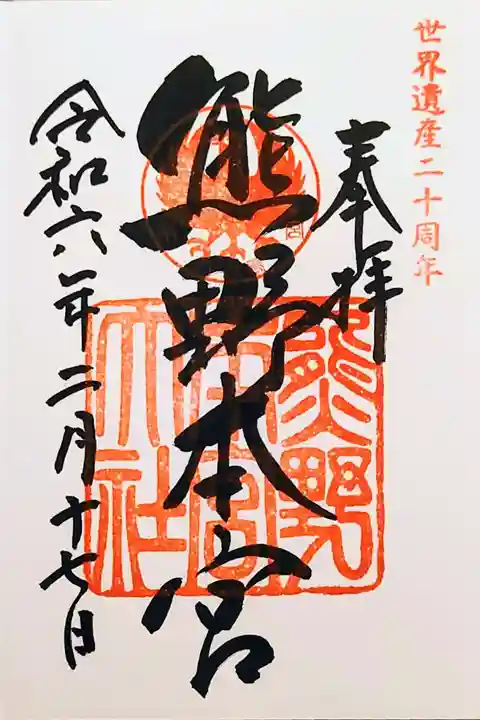 世界遺産二十周年
奉拝
熊野本宮
熊野
本宮
大社
令和六年二月十七日